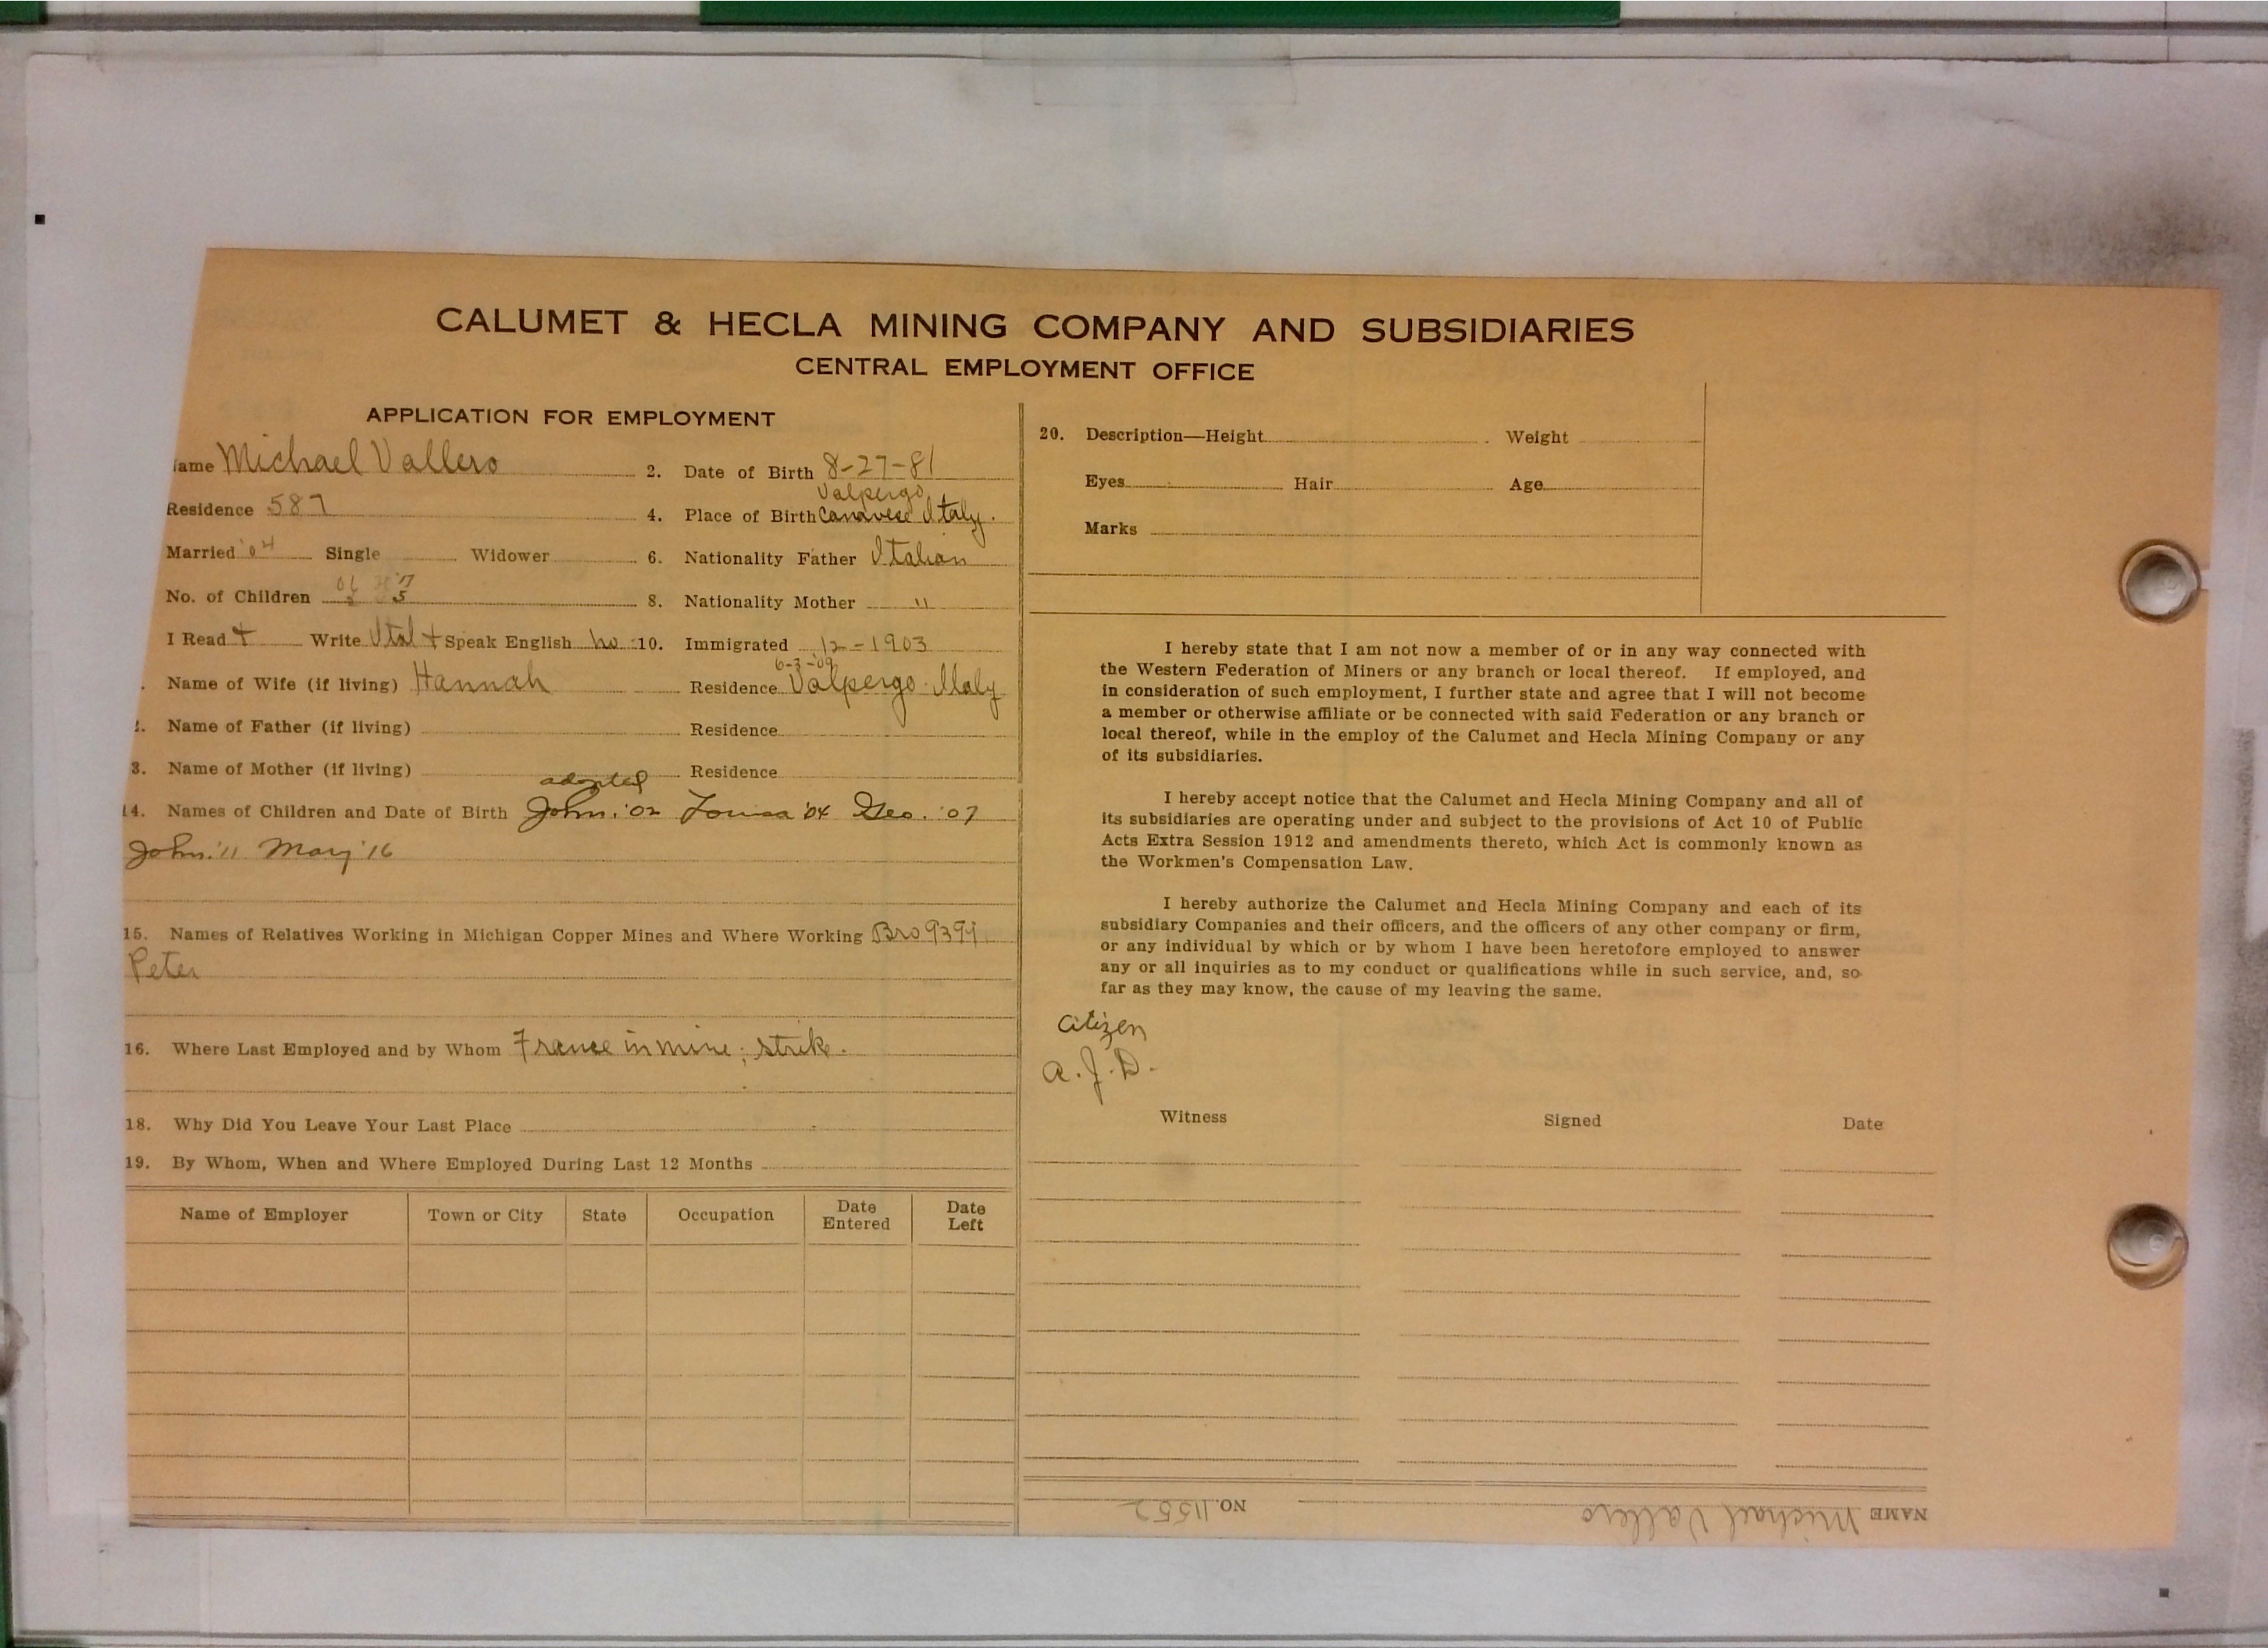 CALUMET & HECLA MINING COMPANY AND SUBSIDIARIES
CENTRAL EMPLOYMENT OFFICE
APPLICATION FOR EMPLOYMENT
ame Michael Vallero 2. Date of Birth 8-27-81
Residence 587 4. Place of Birth Valpergo Canavese Italy.
Married '04 Single Widower 6. Nationality Father Italian
No. of Children 5 8. Nationality Mother "
I Read + Write Ital + Speak English no 10. Immigrated 12-1903
6-3-'09
. Name of Wife (if living) Hannah Residence Valpergo Italy
. Name of Father (if living) Residence
3. Name of Mother (if living) Residence
adopted
14. Names of Children and Date of Birth John '02 Louisa '04 Geo. '07
John '11 Mary '16
15. Names of Relatives Working in Michigan Copper Mines and Where Working Bro 9391
Peter
16. Where Last Employed and by Whom France in mine; strike.
18. Why Did You Leave Your Last Place
19. By Whom, When and Where Employed During Last 12 Months
Name of Employer Town or City State Occupation Date Entered Date Left
20. Description—Height Weight
Eyes Hair Age
Marks
I hereby state that I am not now a member of or in any way connected with
the Western Federation of Miners or any branch or local thereof. If employed, and
in consideration of such employment, I further state and agree that I will not become
a member or otherwise affiliate or be connected with said Federation or any branch or
local thereof, while in the employ of the Calumet and Hecla Mining Company or any
of its subsidiaries.
I hereby accept notice that the Calumet and Hecla Mining Company and all of
its subsidiaries are operating under and subject to the provisions of Act 10 of Public
Acts Extra Session 1912 and amendments thereto, which Act is commonly known as
the Workmen's Compensation Law.
I hereby authorize the Calumet and Hecla Mining Company and each of its
subsidiary Companies and their officers, and the officers of any other company or firm,
or any individual by which or by whom I have been heretofore employed to answer
any or all inquiries as to my conduct or qualifications while in such service, and, so
far as they may know, the cause of my leaving the same.
Citizen
A. J. D.
Witness Signed Date
NAME Michael Vallero NO. 11552